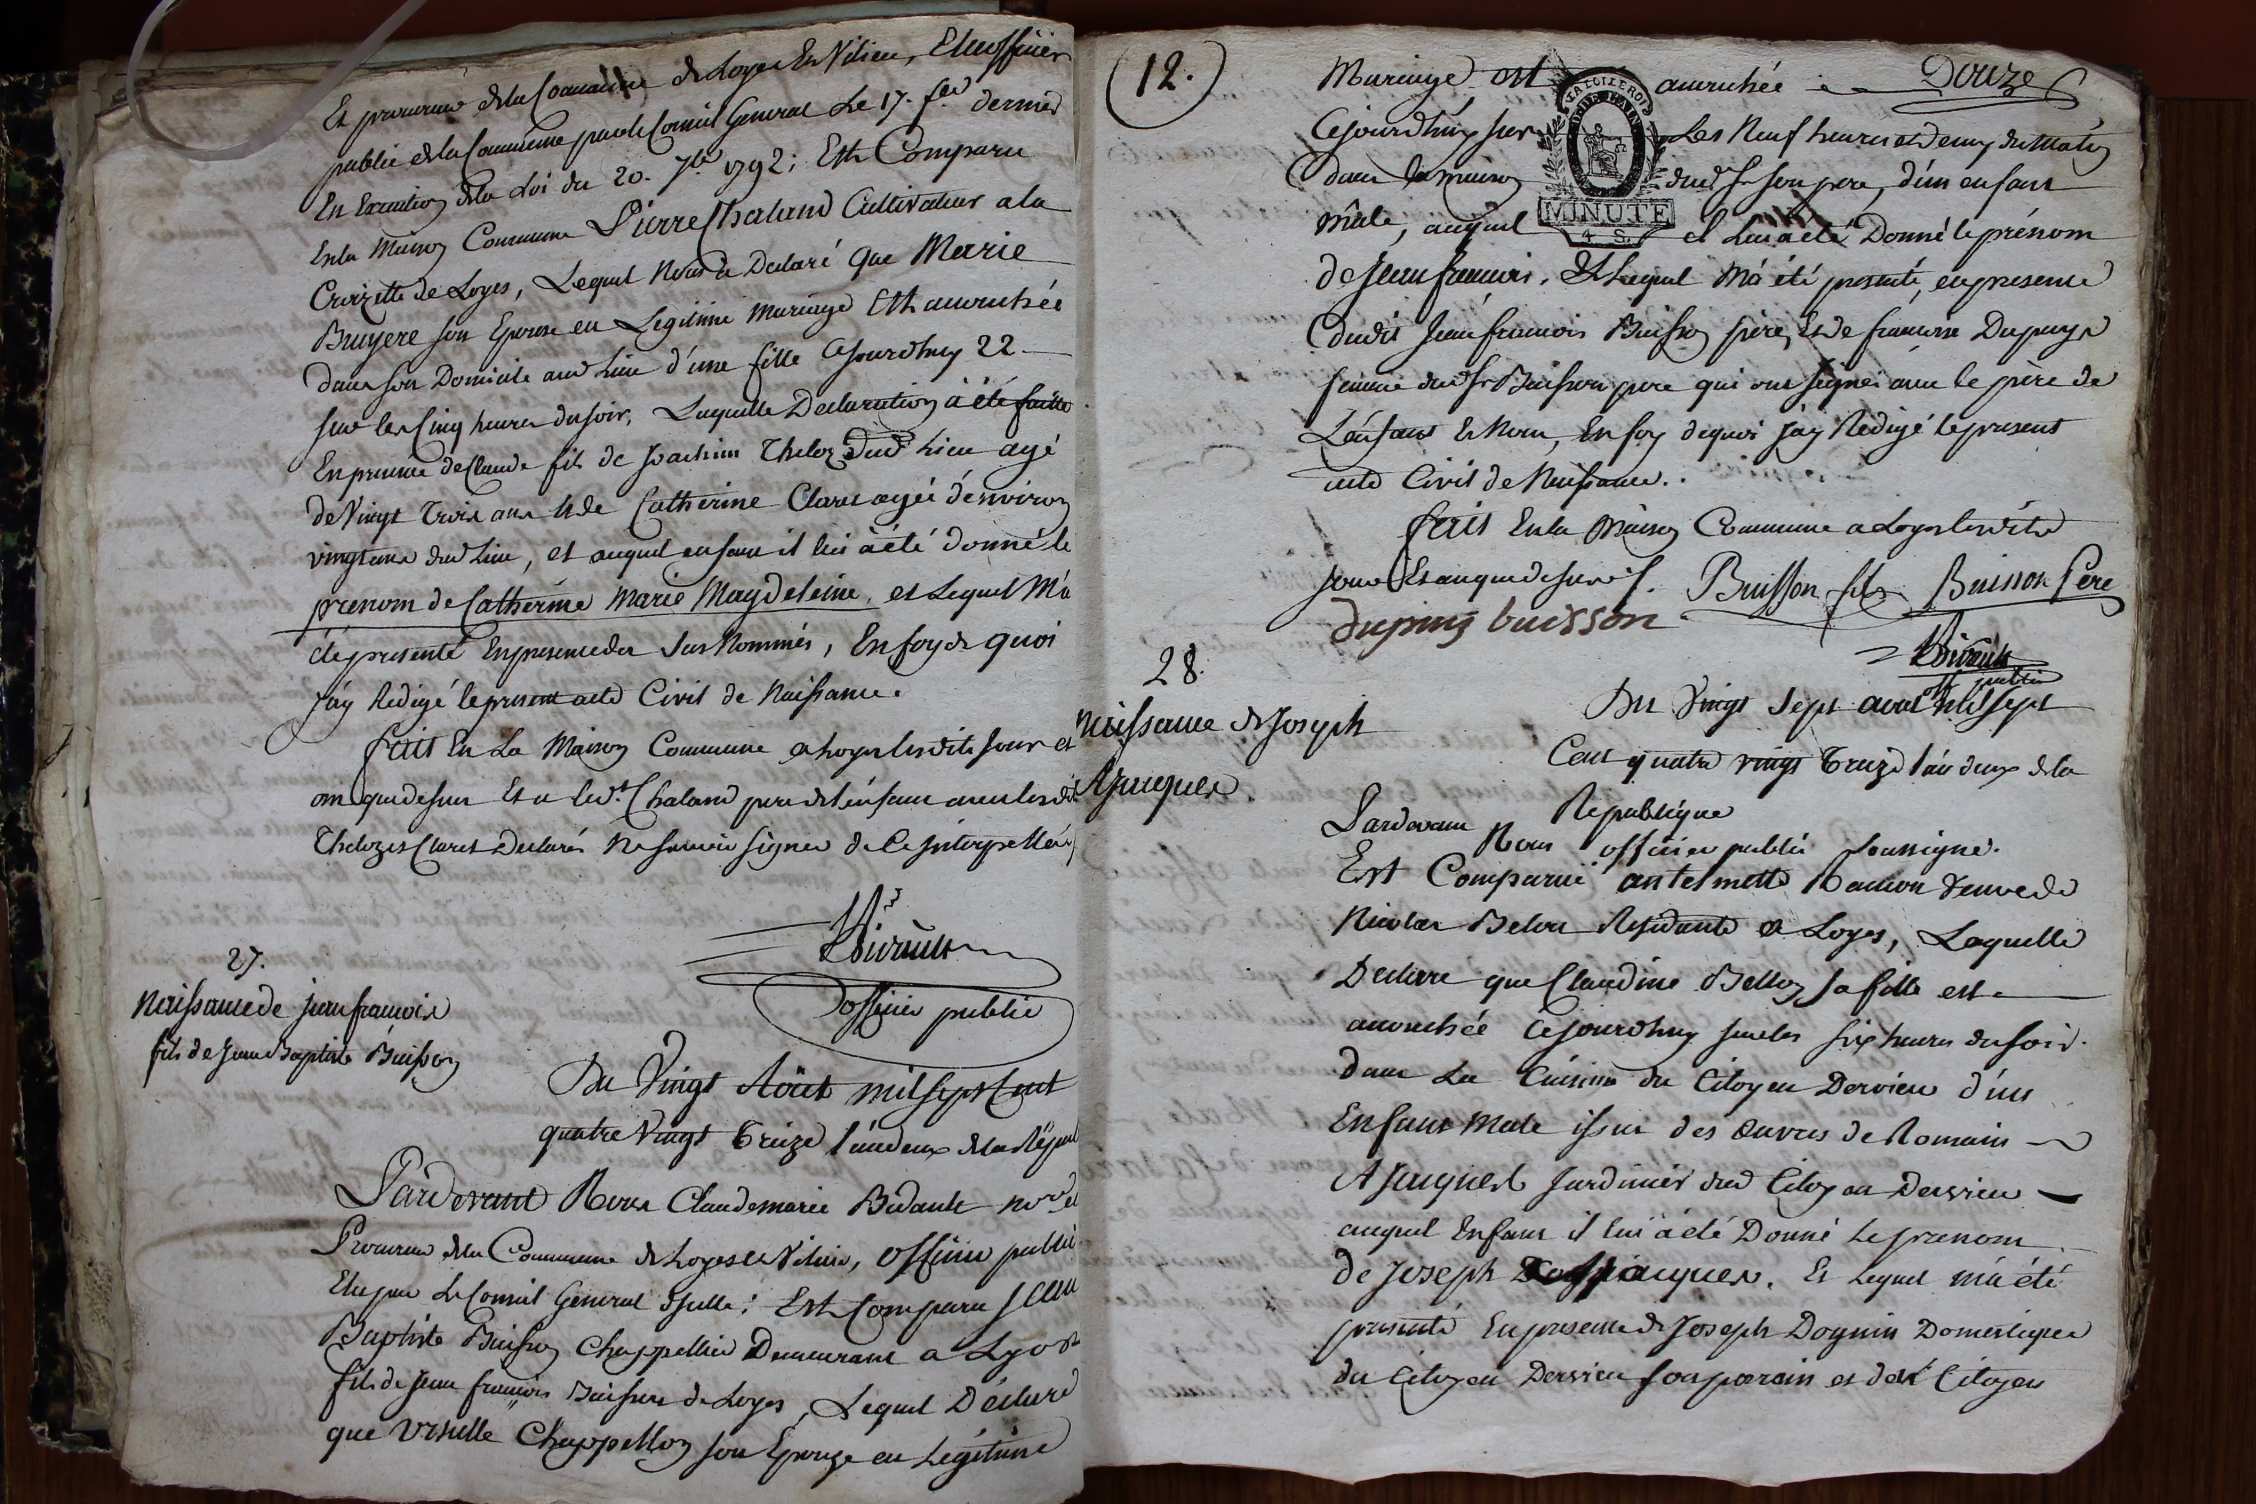 Et procureur de la Commune de Loyes Et Vilieu, Elu officier
public de la Commune par le Conseil General Le 17. fer dernier
En Execution de la Loi du 20. 7bre 1792; Est Comparu
En la Maison Commune Pierre Chaland Cultivateur a la
Croizette de Loyes, Lequel Nous a Déclaré Que Marie
Bruyere son Epouse en Legitime Mariage Est accouchée
dans son Domicile aud Lieu d'une fille Cejourdhuy 22
sur les Cinq heures du soir, Laquelle Declaration à été faitte
En presence de Claude fils de Joachim Theloz dud Lieu agé
de Vingt Trois ans & de Catherine Claret agée d'environ
vingt ans dud Lieu, et auquel enfant il lui à été donné le
prenom de Catherine Marie Magdeleine, et Lequel M'a
été presenté En presence des Susnommés, En foy de quoi
J'ay Redigé le present acte Civil de Naissance.
fait En La Maison Commune a Loyes lesdits jour et
an que dessus Et a led.t Chaland pere de l'enfant avec lesdits
Theloz et Claret Declarés Ne savoir signer de Ce interpellés
Bidault
officier public
27.
Naissance de jean françois
fils de Jean Baptiste Buisson
Du Vingt Août mil sept Cent
quatre Vingt Treize l'an deux de la Répub
Pardevant Nous Claude marie Bidault nore et
Procureur de la Commune de Loyes et Vilieu, officier public
Elu par Le Conseil General d'icelle: Est Comparu Jean
Baptiste Buisson Chappellier Demeurant a Lyon
fils de Jean françois Buisson de Loyes, Lequel Déclare
que Ursulle Chappellon son Epouze en Légitime
12.
Mariage est accouchée Douze
Cejourdhuy sur Les Neuf heures et demy du Matin
dans la maison dud Sr son pere, d'un enfant
mâle, auquel il lui a été Donné le prénom
de Jean françois. Et Lequel M'a été presenté, en presence
dudit Jean francois Buisson père, Et de francoise Dupuys
femme dud Sr Buisson pere qui ont signé avec le père de
L'enfant & Nous, En foy de quoi J'ay Redigé le present
acte Civil de Naissance.
fait En la Maison Commune a Loyes lesdits
jour Et an que dessus. Buisson fils Buisson Pere
dupuis buisson
Bidault
off public
LA LOI LE ROI
MINUTE
4 S.
28.
Naissance de Joseph
Ajacques
Du Vingt Sept aout Mil sept
Cent quatre vingt Treize l'an deux de la
Republique
Pardevant Nous officier public soussigné.
Est Comparue antelmette Ramon Veuve de
Nicolas Belon Residante a Loyes, Laquelle
Declare que Claudine Bellon sa fille est
accouchée Cejourdhuy sur les six heures du soir
dans La Cuisine du Citoyen Dervieu d'un
Enfant Male issu des Œuvres de Romain
Ajacques Jardinier dud Citoyen Dervieu
auquel Enfant il lui a été Donné le prenom
de Joseph Ajacques. Et Lequel m'a été
presenté En presence de Joseph Doguin Domestique
du Citoyen Dervieu son parain et de Citoyen